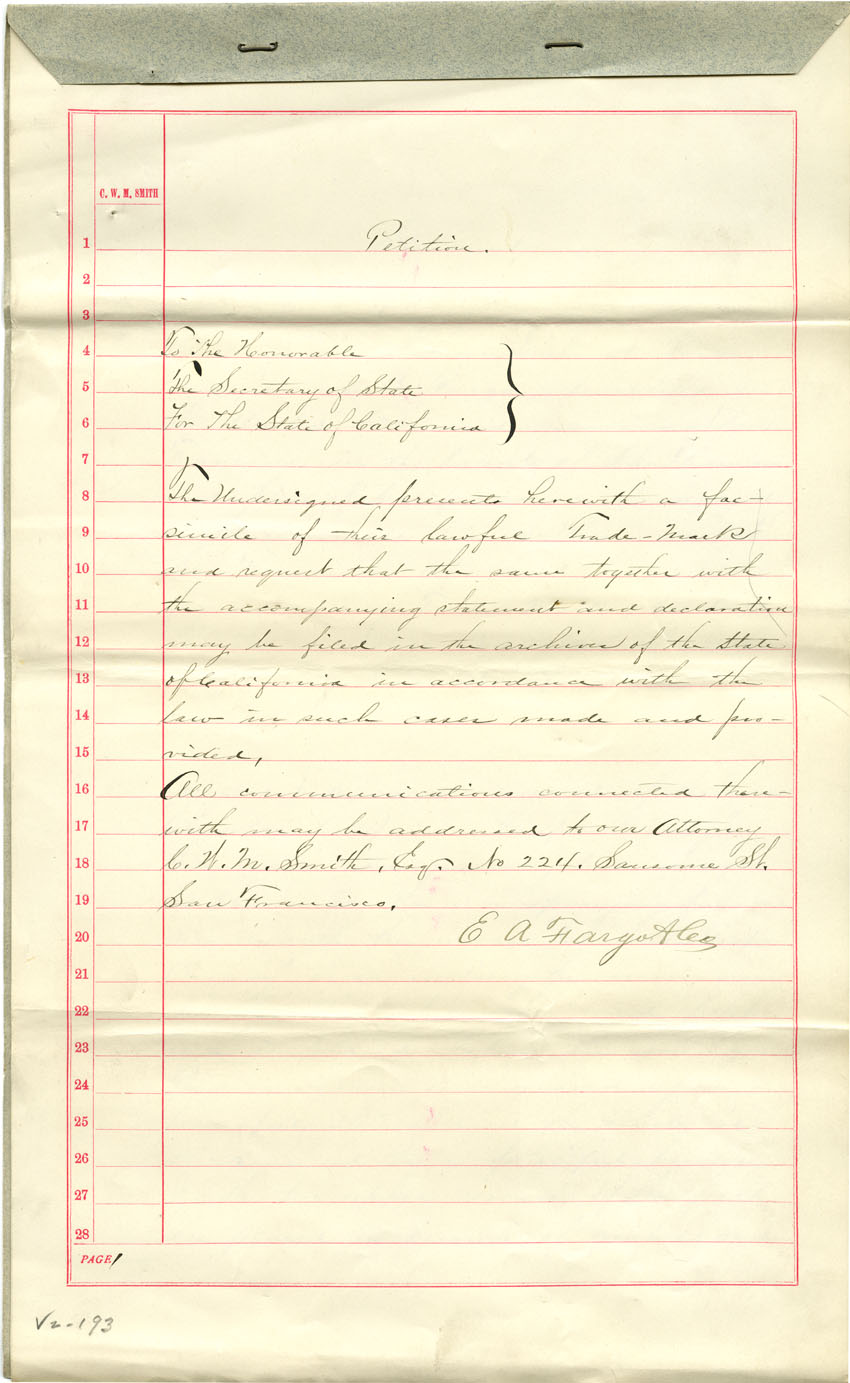 C. W. M. SMITH
1 Petition.
2
3
4 To The Honorable
5 The Secretary of State
6 For The State of California
7
8 The Undersigned presents herewith a fac-
9 simile of their lawful Trade-Mark
10 and request that the same together with
11 the accompanying statement and declaration
12 may be filed in the archives of the State
13 of California in accordance with the
14 law in such cases made and pro-
15 vided,
16 All communications connected there-
17 with may be addressed to our Attorney
18 C. W. M. Smith, Esq. No 224. Sansome St.
19 San Francisco.
20 E A Fargo & Co
21
22
23
24
25
26
27
28
PAGE 1
V2-193